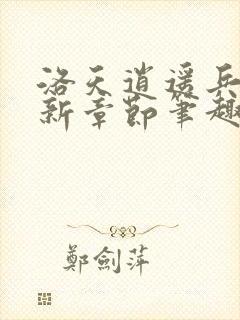 洛天逍遥兵
新章節筆趣
鄭劍萍